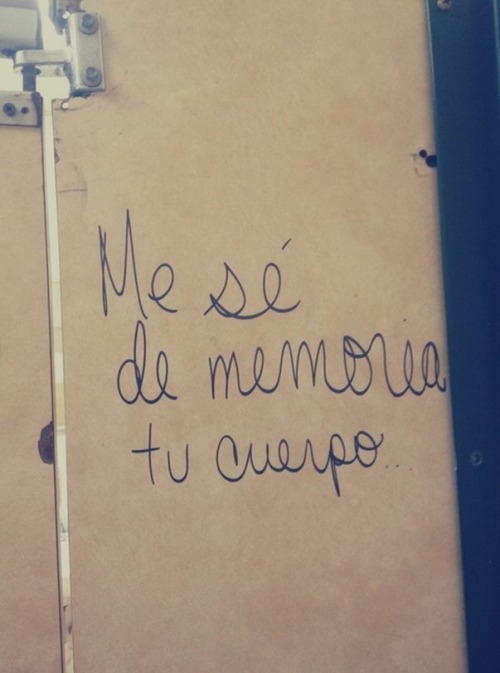 Me sé
de memoria
tu cuerpo...